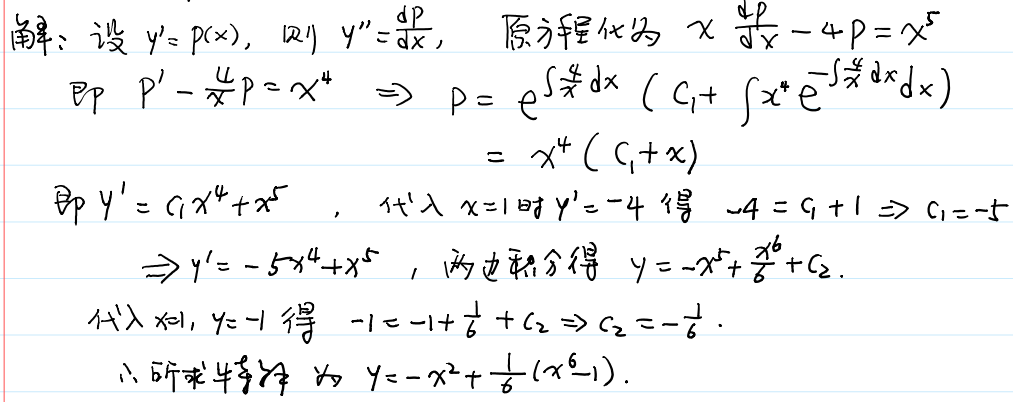 解：设 y'=p(x), 则 y''=dp/dx, 原方程化为 x dp/dx - 4p = x⁵
即 p' - 4/x p = x⁴ ⇒ p = e^(∫4/x dx) ( C₁ + ∫x⁴ e^(-∫4/x dx) dx )
= x⁴ ( C₁ + x )
即 y' = C₁x⁴ + x⁵ , 代入 x=1时 y'=-4 得 -4 = C₁ + 1 ⇒ C₁ = -5
⇒ y' = -5x⁴ + x⁵ , 两边积分得 y = -x⁵ + x⁶/6 + C₂.
代入 x=1, y=-1 得 -1 = -1 + 1/6 + C₂ ⇒ C₂ = -1/6 .
∴ 所求特解为 y = -x² + 1/6 (x⁶-1).